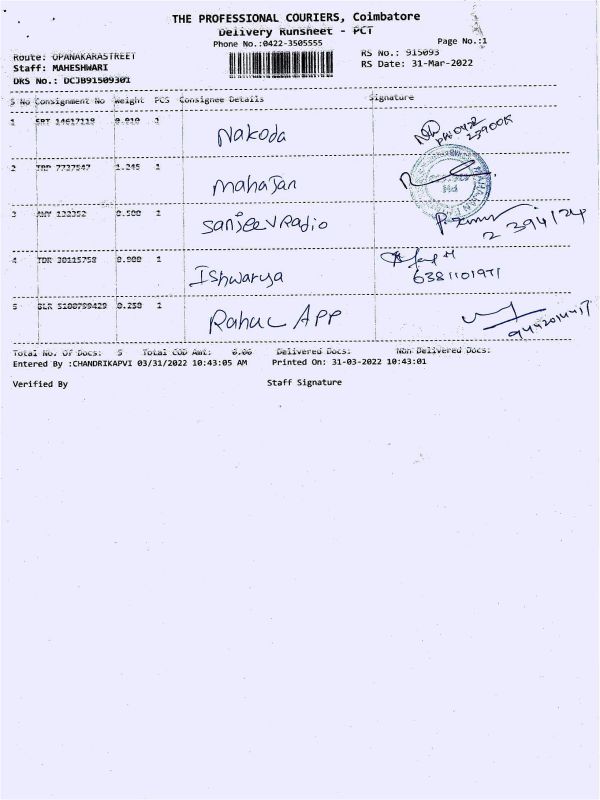 THE PROFESSIONAL COURIERS, Coimbatore
Delivery Runsheet - PCT
Phone No.:0422-3505555
Page No.:1
Route: OPANAKARASTREET
RS No.: 915093
Staff: MAHESHWARI
RS Date: 31-Mar-2022
DRS No.: DCJB91509301
S No Consignment No Weight PCS Consignee Details Signature
1 SRT 14617118 0.010 1 Nakoda
2 7737547 1.245 1 mahajan
3 132352 0.500 1 Sanjeev Radio
4 TDR 30115758 0.900 1 Ishwarya
6381101971
5 GLR 5100799429 0.250 1 Rahul APP
9442014417
Total No. Of Docs: 5 Total COD Amt: 0.00 Delivered Docs: Non Delivered Docs:
Entered By :CHANDRIKAPVI 03/31/2022 10:43:05 AM Printed On: 31-03-2022 10:43:01
Verified By Staff Signature